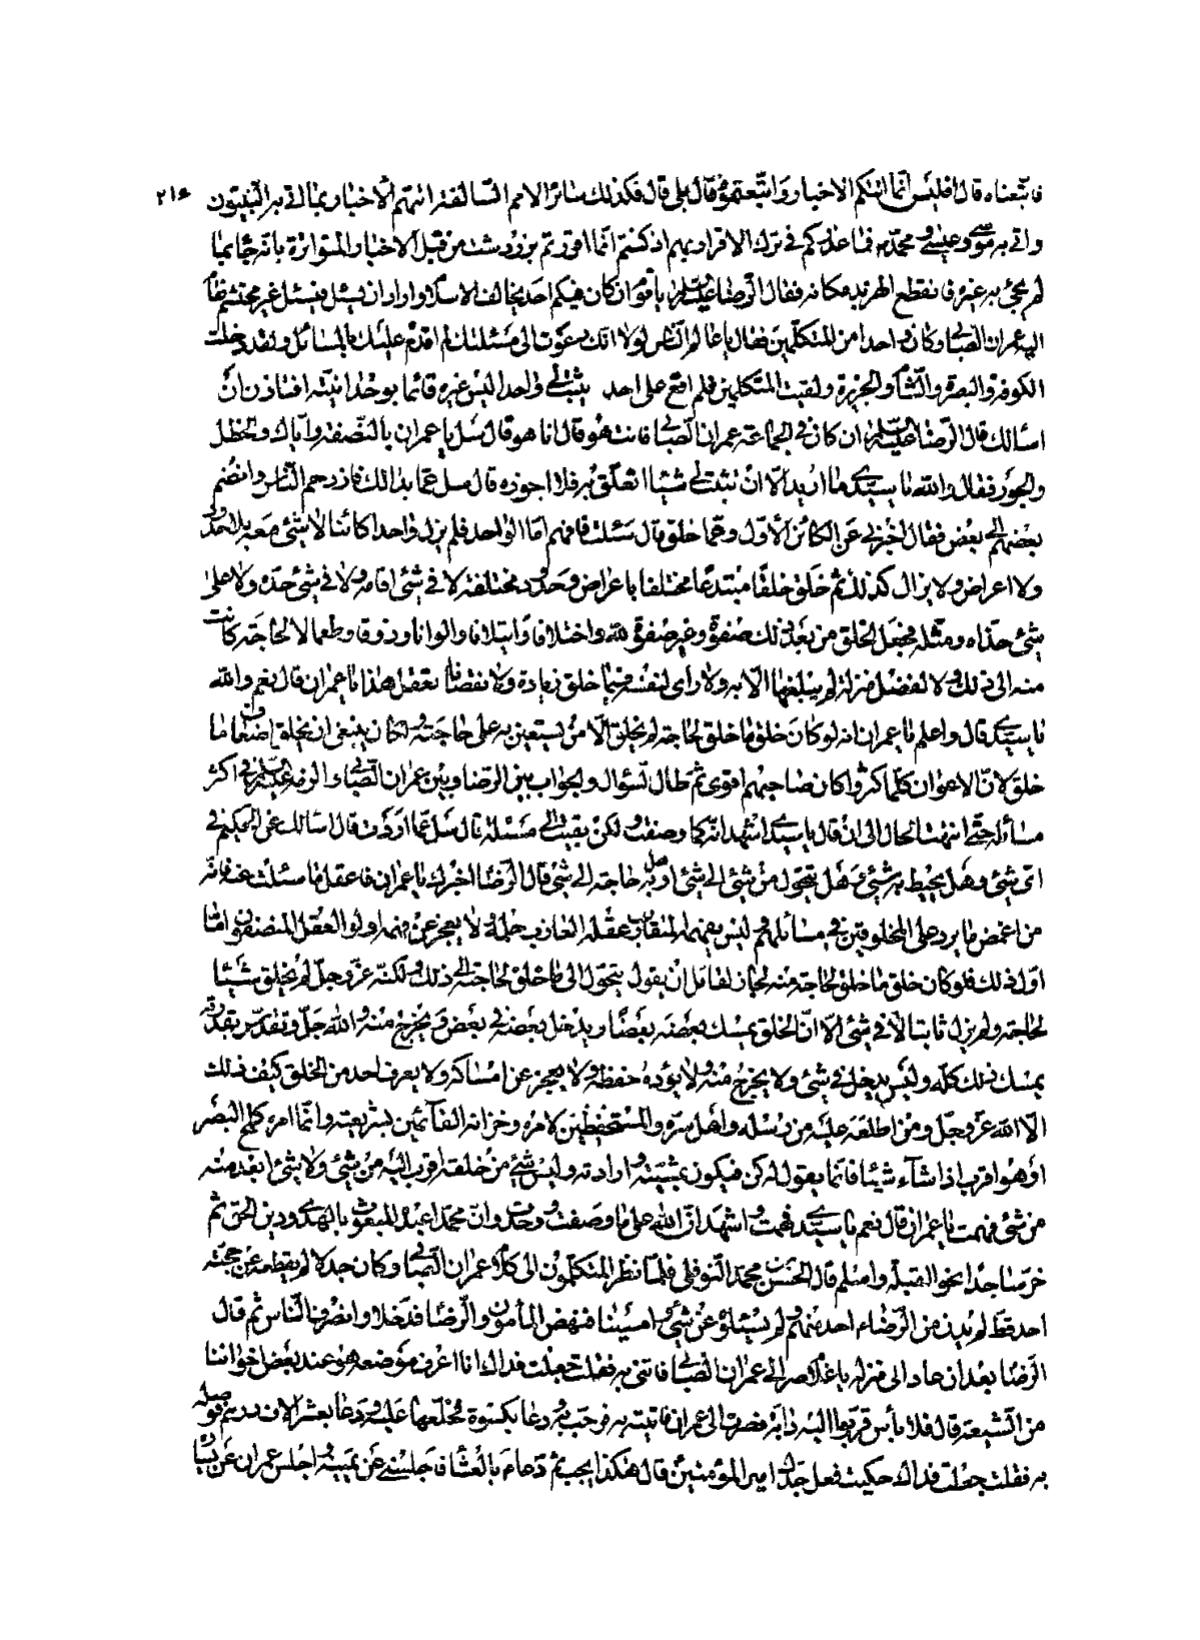 فاتبعناه قال افليس انما اتتكم الاخبار واتبعتموه قال بلى قال فكذلك سائر الامم السالفة اتتهم الاخبار بما اتى به النبيون ٢١۶
واتى به موسى وعيسى ومحمد ص فما عذركم في ترك الاقرار بهم اذ كنتم انما اقررتم بزردشت من قبل الاخبار المتواترة بانه جاء بما
لم يجئ به غيره فانقطع الهربذ مكانه فقال الرضا عليه السلم يا قوم ان كان فيكم احد يخالف الاسلام واراد ان يسئل فليسئل غير محتشم فقام
اليه عمران الصابى وكان واحدا من المتكلمين فقال يا عالم الناس لولا انك دعوت الى مسئلتك لم اقدم عليك بالمسائل ولقد دخلت
الكوفة والبصرة والشام والجزيرة ولقيت المتكلمين فلم اقع على احد يثبت لى واحدا ليس غيره قائما بوحدانيته افتاذن ان
اسالك قال الرضا عليه السلم ان كان في الجماعة عمران الصابى فانت هو قال انا هو قال سل يا عمران بالنصفة واياك والخطل
والجور فقال والله يا سيدى ما اريد الا ان تثبت لى شيئا اتعلق به فلا اجوزه قال سل عما بدا لك فازدحم الناس وانضم
بعضهم الى بعض فقال اخبرنى عن الكائن الاول وعما خلق قال سئلت فافهم اما الواحد فلم يزل واحدا كائنا لا شئ معه بلا حدود
ولا اعراض ولا يزال كذلك ثم خلق خلقا مبتدعا مختلفا باعراض وحدود مختلفة لا في شئ اقامه ولا في شئ حده ولا على
شئ حذاه ومثله فجعل الخلق من بعد ذلك صفوة وغير صفوة واختلافا وايتلافا والوانا وذوقا وطعما لا لحاجة كانت
منه الى ذلك ولا لفضل منزلة لم يبلغها الا به ولا راى لنفسه فيما خلق زيادة ولا نقصانا تعقل هذا يا عمران قال نعم والله
يا سيدى قال واعلم يا عمران انه لو كان خلق ما خلق لحاجة لم يخلق الا من يستعين به على حاجته ولكان ينبغى ان يخلق اضعاف ما
خلق لان الاعوان كلما كثروا كان صاحبهم اقوى ثم طال السؤال والجواب بين الرضا وبين عمران الصابى والزمه عليه السلم في اكثر
مسائله حتى انتهت الحال الى ان قال يا سيدى اشهد انه كما وصفت ولكن بقيت لى مسئلة قال سل عما اردت قال اسالك عن الحكيم في
اى شئ وهل يحيط به شئ وهل يتحول من شئ الى شئ او به حاجة الى شئ قال الرضا اخبرك يا عمران فاعقل ما سئلت عنه فانه
من اغمض ما يرد على المخلوقين في مسائلهم وليس يفهمه المتقارب عقله العازب حلمه ولا يعجز عن فهمه اولوا العقل المنصفون اما
اول ذلك فلو كان خلق ما خلق لحاجة منه لجاز لقائل ان يقول يتحول الى ما خلق لحاجته الى ذلك ولكنه عز وجل لم يخلق شيئا
لحاجة ولم يزل ثابتا لا في شئ الا ان الخلق يمسك بعضه بعضا ويدخل بعضه في بعض ويخرج منه والله جل وتقدس بقدرته
يمسك ذلك كله وليس يدخل في شئ ولا يخرج منه ولا يؤده حفظه ولا يعجز عن امساكه ولا يعرف احد من الخلق كيف ذلك
الا الله عز وجل ومن اطلعه عليه من رسله واهل سره والمستحفظين لامره وخزانه القائمين بشريعته وانما امره كلمح البصر
او هو اقرب اذا شاء شيئا فانما يقول له كن فيكون بمشيته وارادته وليس شئ من خلقه اقرب اليه من شئ ولا شئ ابعد منه
من شئ افهمت يا عمران قال نعم يا سيدى فهمت واشهد ان الله على ما وصفت ووحدت وان محمدا عبده المبعوث بالهدى ودين الحق ثم
خر ساجدا نحو القبلة واسلم قال الحسن بن محمد النوفلى فلما نظر المتكلمون الى كلام عمران الصابى وكان جدلا لم يقطعه عن حجته
احد قط لم يدن من الرضاء احد منهم ولم يسئلوه عن شئ وامسينا فنهض المأمون والرضا فدخلا وانصرف الناس ثم قال
الرضا بعد ان عاد الى منزله يا غلام صر الى عمران الصابى فاتنى به فقلت جعلت فداك انا اعرف موضعه هو عند بعض اخواننا
من الشيعة قال فلا بأس قربوا اليه دابة فصرت الى عمران فاتيته به فرحب به ودعا بكسوة فخلعها عليه ودعا بعشر الاف درهم فوصله
به فقلت جعلت فداك حكيت فعل جدك امير المؤمنين قال هكذا يجب ثم دعا ء بالعشا فاجلسنى عن يمينه واجلس عمران عن يسا